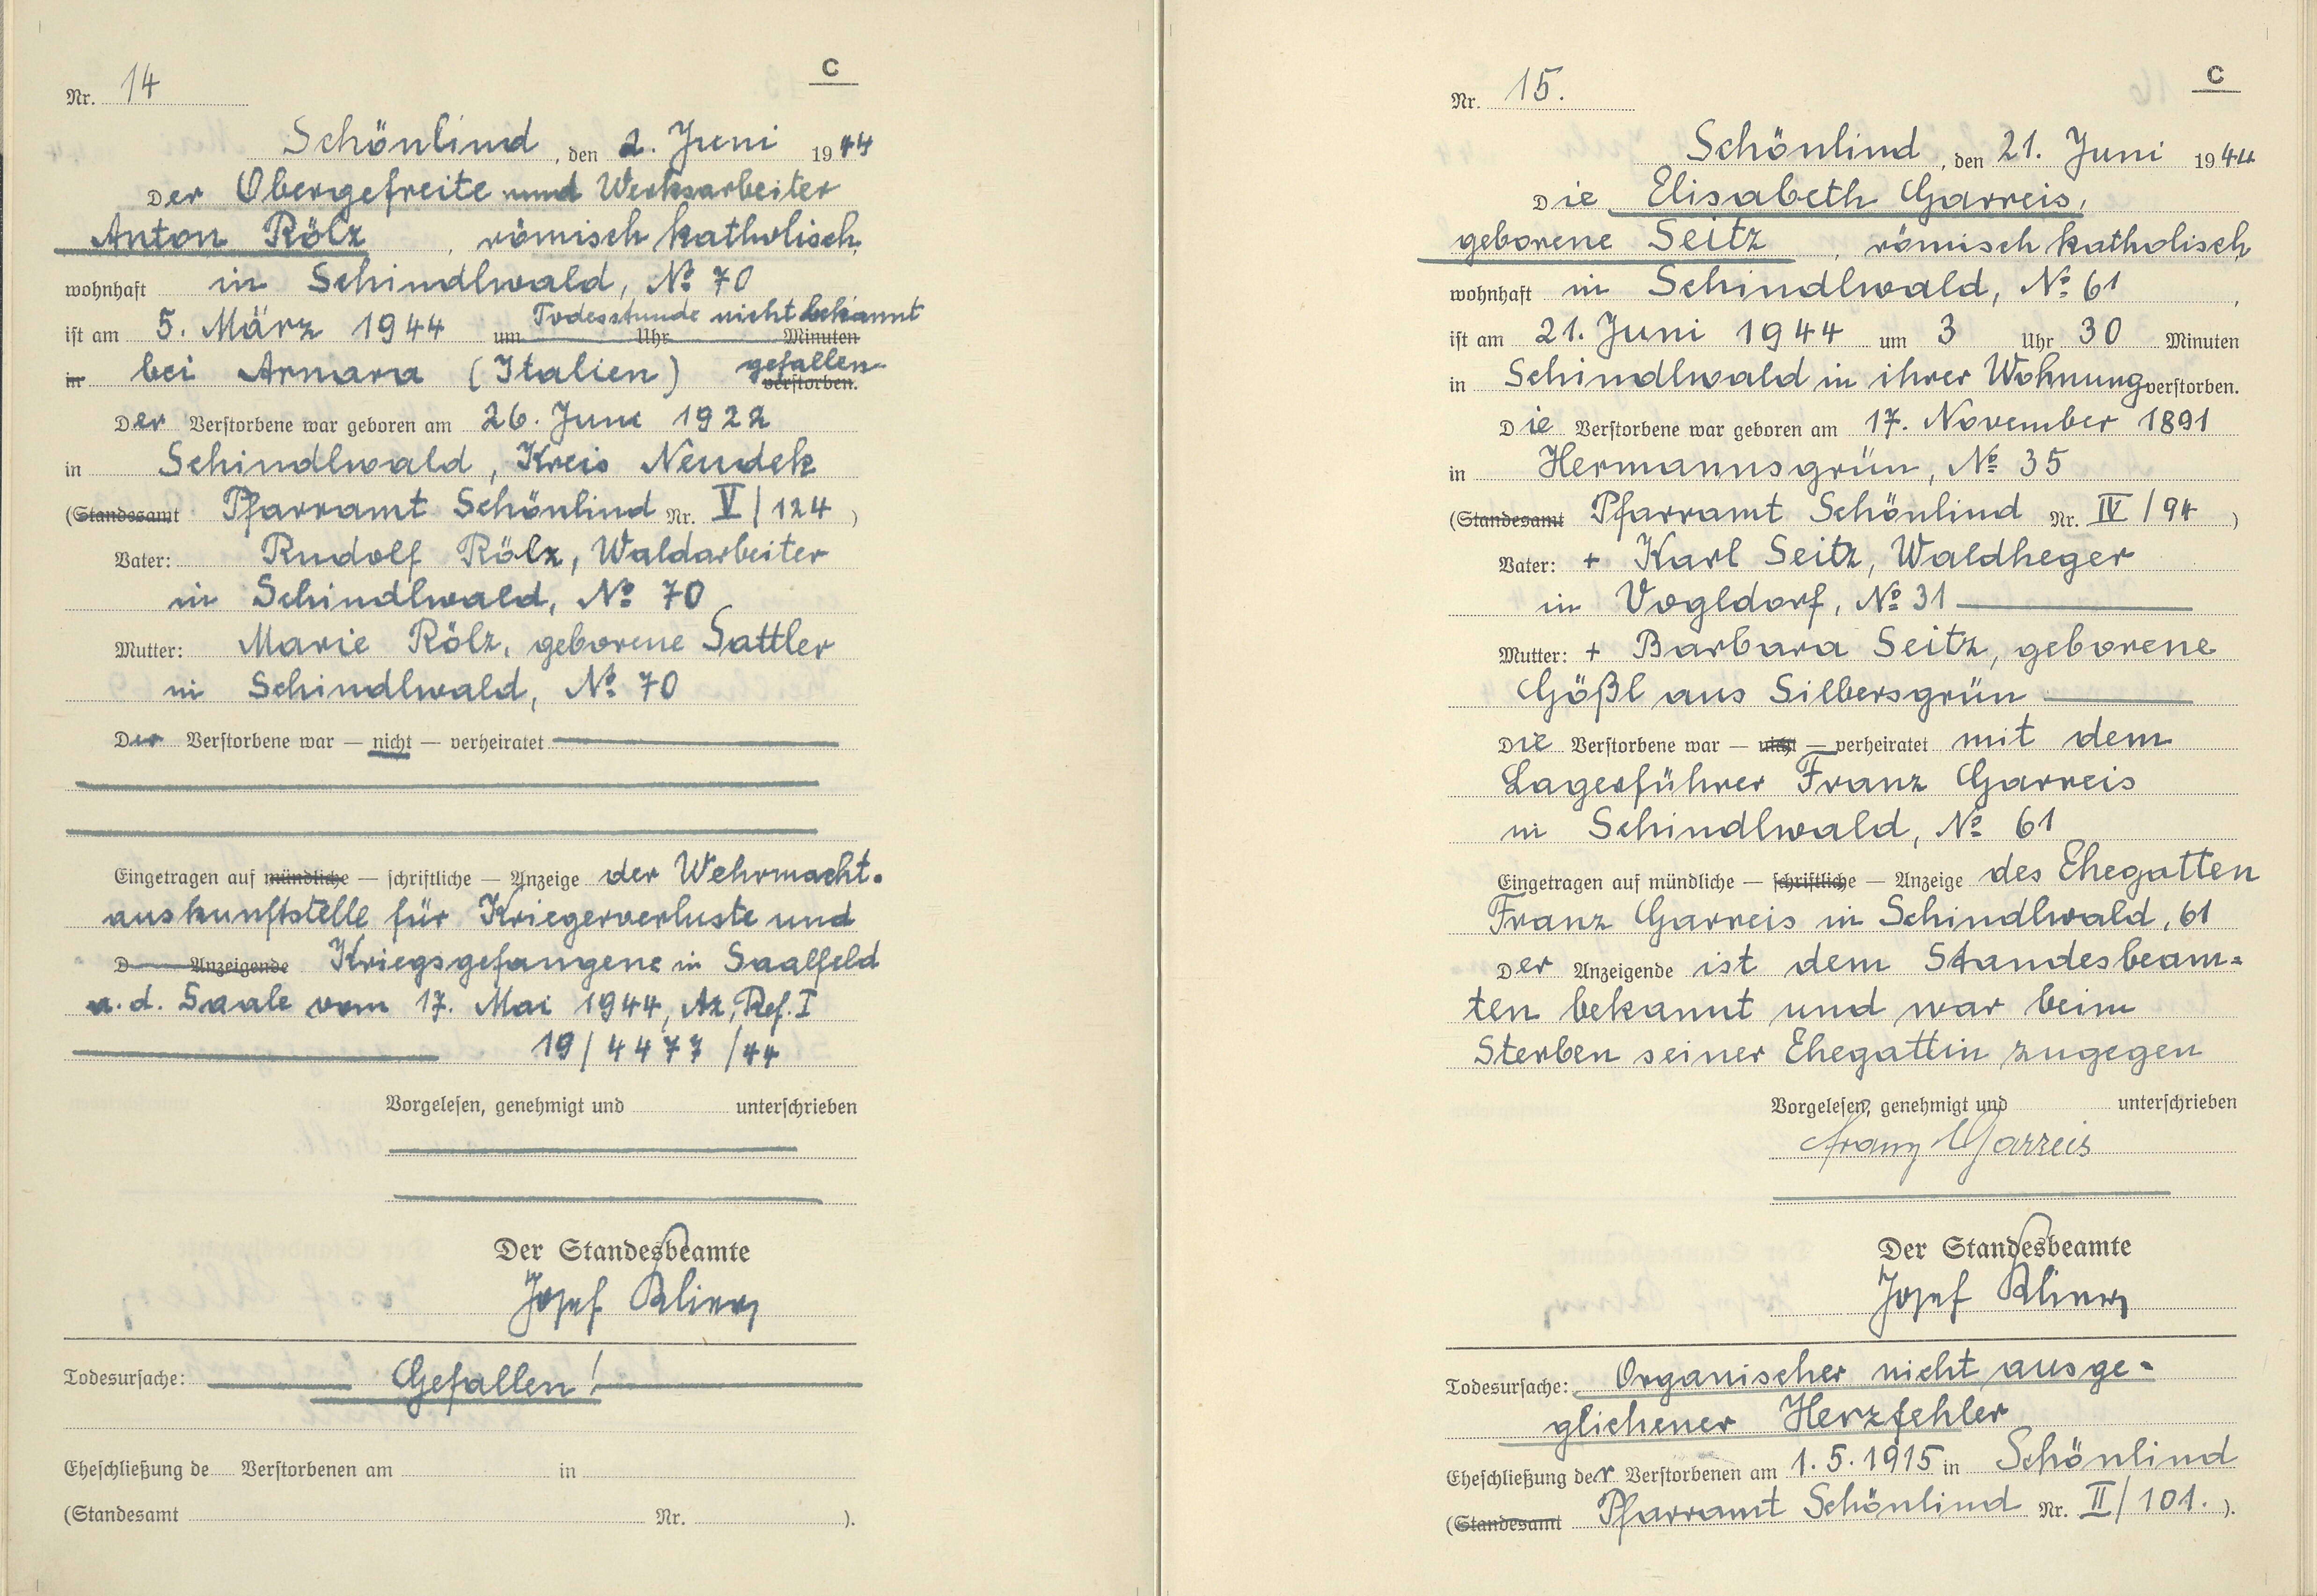 C
Nr. 14
Schönlind, den 2. Juni 1944
Der Obergefreite und Werksarbeiter
Anton Rölz, römisch katholisch,
wohnhaft in Schindlwald, No 70
Todesstunde nicht bekannt
ist am 5. März 1944 um Uhr Minuten
gefallen
in bei Arnara (Italien) verstorben.
Der Verstorbene war geboren am 26. Juni 1922
in Schindlwald, Kreis Neudek
(Standesamt Pfarramt Schönlind Nr. V/124)
Vater: Rudolf Rölz, Waldarbeiter
in Schindlwald, No 70
Mutter: Marie Rölz, geborene Sattler
in Schindlwald, No 70
Der Verstorbene war — nicht — verheiratet
Eingetragen auf mündliche — schriftliche — Anzeige der Wehrmacht-
auskunftstelle für Kriegerverluste und
D Anzeigende Kriegsgefangene in Saalfeld
a. d. Saale vom 17. Mai 1944, Az, Ref. I
19/4477/44
Vorgelesen, genehmigt und unterschrieben
Der Standesbeamte
Josef
Todesursache: Gefallen!
Eheschließung de Verstorbenen am in
(Standesamt Nr. ).
C
Nr. 15.
Schönlind, den 21. Juni 1944
Die Elisabeth Garreis,
geborene Seitz, römisch katholisch
wohnhaft in Schindlwald, No 61,
ist am 21. Juni 1944 um 3 Uhr 30 Minuten
in Schindlwald in ihrer Wohnung verstorben.
Die Verstorbene war geboren am 17. November 1891
in Hermannsgrün, No 35
(Standesamt Pfarramt Schönlind Nr. IV/94)
Vater: + Karl Seitz, Waldheger
in Vogldorf, No 31
Mutter: + Barbara Seitz, geborene
Gößl aus Silbersgrün
Die Verstorbene war — nicht — verheiratet mit dem
Lagerführer Franz Garreis
in Schindlwald, No 61
Eingetragen auf mündliche — schriftliche — Anzeige des Ehegatten
Franz Garreis in Schindlwald, 61
Der Anzeigende ist dem Standesbeam-
ten bekannt und war beim
Sterben seiner Ehegattin zugegen
Vorgelesen, genehmigt und unterschrieben
Franz Garreis
Der Standesbeamte
Josef
Todesursache: Organischer nicht ausge-
glichener Herzfehler
Eheschließung der Verstorbenen am 1.5.1915 in Schönlind
(Standesamt Pfarramt Schönlind Nr. II/101.).